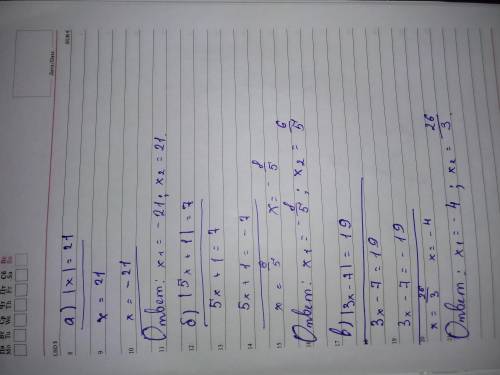 а) |x| = 21
x = 21
x = -21
Ответ: x1 = -21; x2 = 21.
б) |5x + 1| = 7
5x + 1 = 7
5x + 1 = -7
x = 6/5   x = -8/5
Ответ: x1 = -8/5; x2 = 6/5
в) |3x - 7| = 19
3x - 7 = 19
3x - 7 = -19
x = 26/3   x = -4
Ответ: x1 = -4; x2 = 26/3.
8
9
10
11
12
13
14
15
16
17
19
20